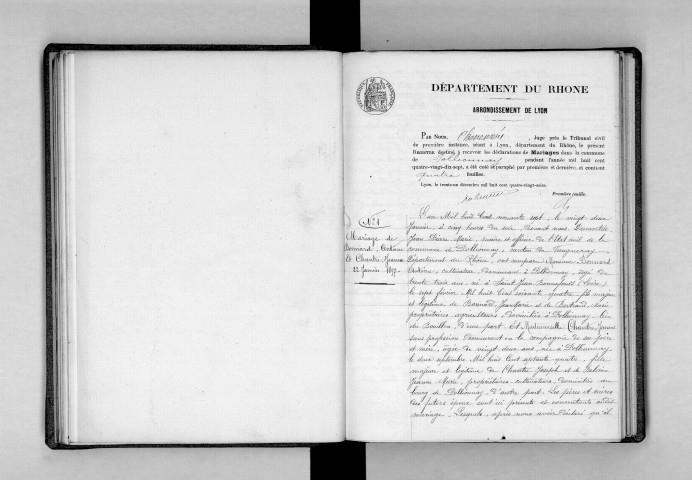 DÉPARTEMENT DU RHONE
ARRONDISSEMENT DE LYON
PAR NOUS, Juge près le Tribunal civil
de première instance, séant à Lyon, département du Rhône, le présent
REGISTRE destiné à recevoir les déclarations de Mariages dans la commune
de Pollionnay pendant l'année mil huit cent
quatre-vingt-dix-sept, a été coté et paraphé par première et dernière, et contient
quatre feuilles.
Lyon, le trente-un décembre mil huit cent quatre-vingt-seize.
Première feuille.
N° 1
Mariage de
Bonnard Antoine
& Chantre Jeanne
22 Janvier 1897
L'an Mil huit Cent nonante sept, le vingt deux
Janvier, à cinq heures du soir, devant nous
Jean Pierre Marie, maire et officier de l'Etat civil de la
commune de Pollionnay, canton de Vaugneray
Département du Rhône, ont comparu Monsieur Bonnard
Antoine, cultivateur demeurant à Pollionnay, âgé de
trente trois ans, né à Saint Jean Bonnefonds (Loire)
le sept février Mil huit Cent soixante quatre, fils majeur
et légitime de Bonnard Jean Marie et de Bertrand Marie
propriétaires agriculteurs domiciliés à Pollionnay, lieu
du d'une part. Et Mademoiselle Chantre Jeanne
sans profession demeurant en la compagnie de ses père
et mère, âgée de vingt deux ans, née à Pollionnay
le deux septembre Mil huit Cent septante quatre, fille
majeure et légitime de Chantre Joseph et de
Jeanne Marie, propriétaires cultivateurs domiciliés au
bourg de Pollionnay, d'autre part. Les pères et mères
des futurs époux sont ici présents et consentants audit
mariage. Lesquels, après nous avoir déclaré qu'il